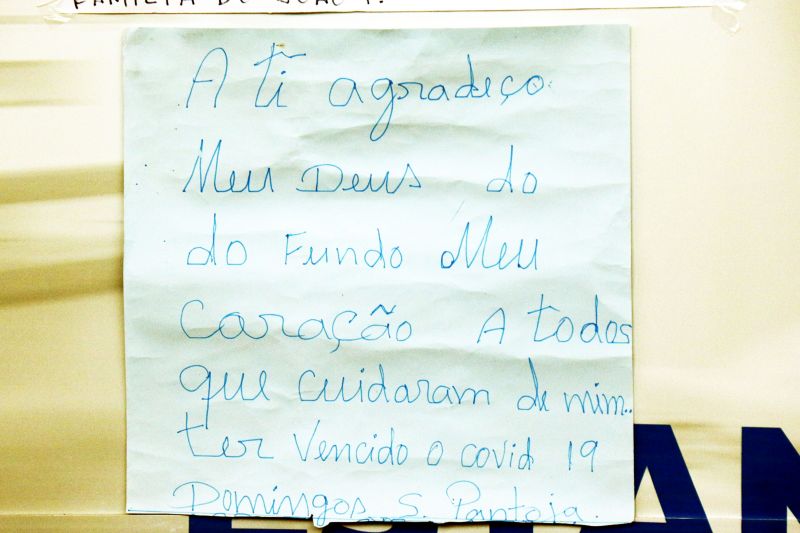 FAMILIA DE JOAO P.
A ti agradeço
Meu Deus do
do Fundo Meu
Caração A todos
que cuidaram de mim..
ter Vencido o covid 19
Domingos S. Pantoja.